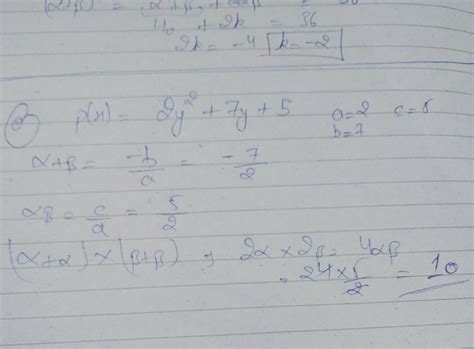 (α+β)² =
40 + 2k = 36
2k = -4 k = -2
p(x) = 2y² + 7y + 5 a=2 c=5
b=7
α+β = -b/a = -7/2
αβ = c/a = 5/2
(α+α) × (β+β) , 2α × 2β = 4αβ
= 4 × 5/2 = 10